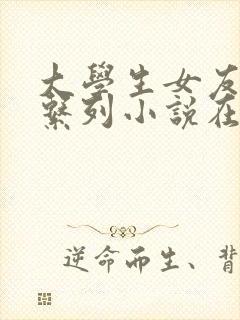 大學生女友
繫列小說在
逆命而生、背